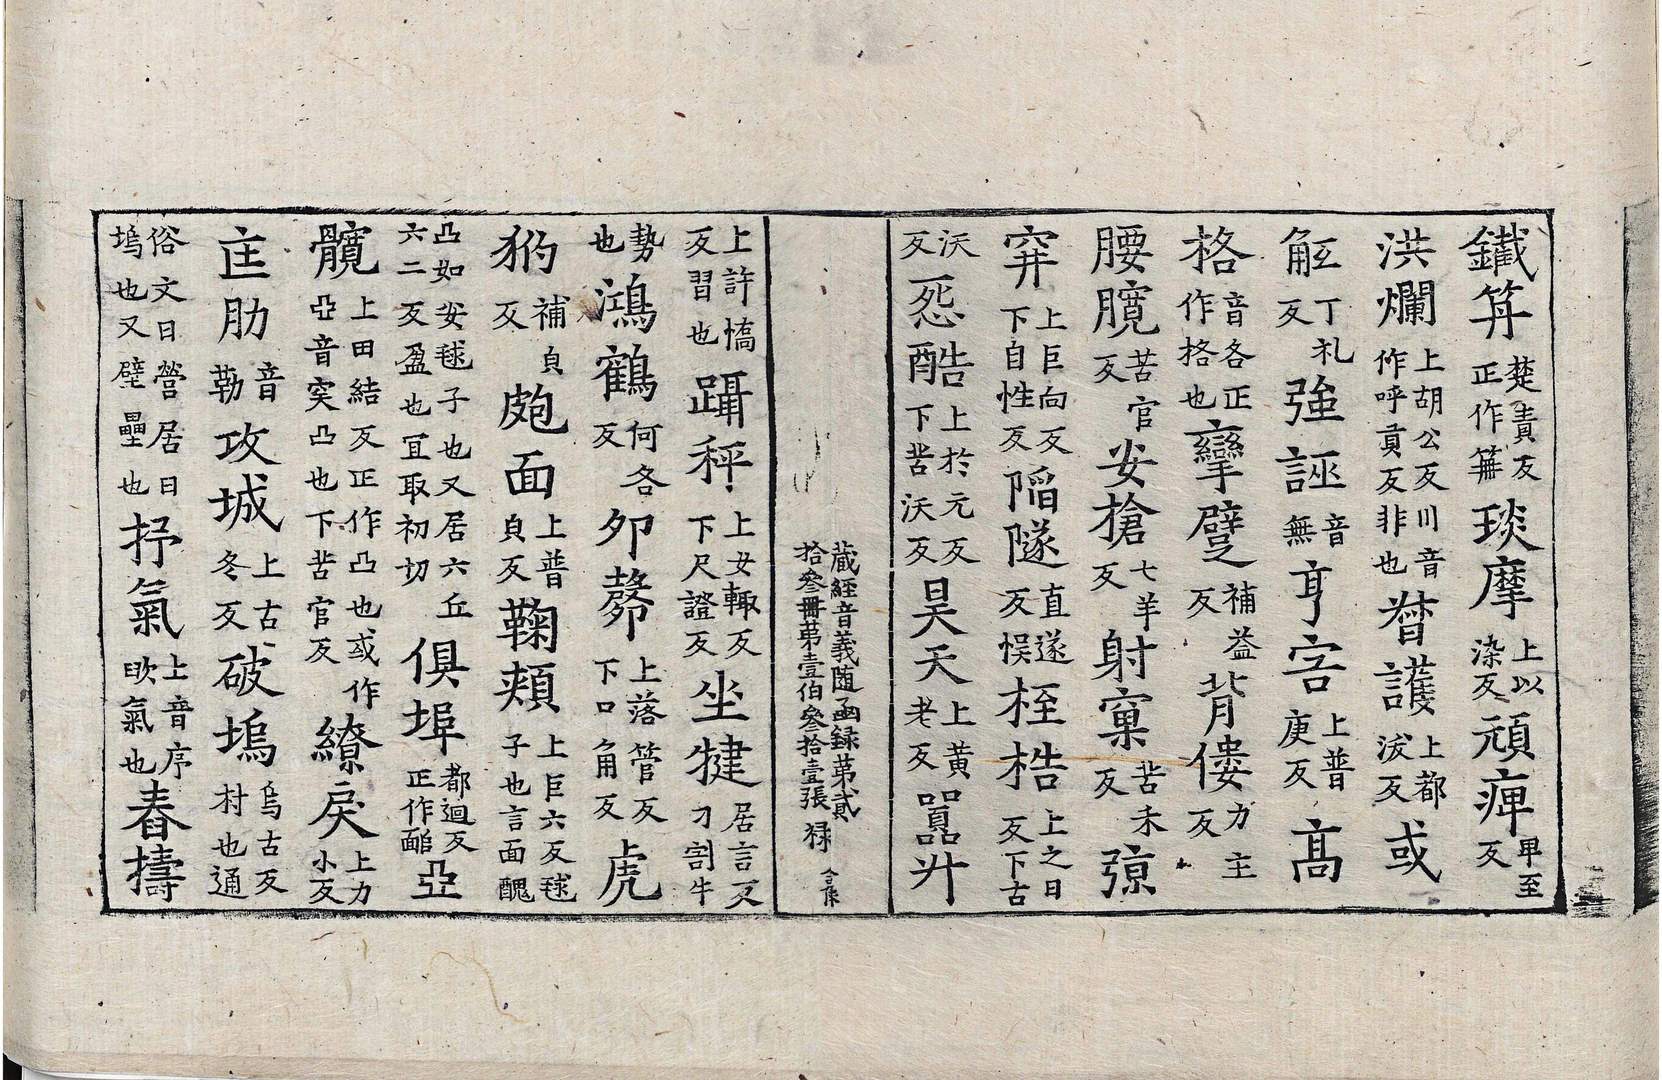 鐵笧楚責反正作䇲琰摩上以染反頑痺卑至反
洪爛上胡公反川音作呼貢反非也㬱護上都浽反或
𧣾丁礼反強誣音無亨客上普庚反髙
格音各正作挌也攣躄補益反背僂力主反
腰髖苦官反安槍七羊反射窠苦禾反弶
穽上巨向反下自性反陷隧直遂反悞桎梏上之日反下古
沃反怨酷上於元反下苦沃反昊天上黄老反嚚升
藏經音義随函録第貳拾叅冊第壹伯叅拾壹張 禄
上許憍反習也躡秤上女輒反下尺證反坐犍居言反刁割牛
勢也鴻鶴何各反夘㲉上落管反下口角反虎
豹補皃反皰面上普皃反鞠頰上巨六反毬子也言面醜
凸如安毬子也又居六丘六二反盈也冝取初切俱埠都迴反正作䭔亞
髖上田結反正作凸也或作亞音𥥛凸也下苦官反繚戾上力小反
㐀肋音勒攻城上古冬反破塢烏古反村也通
俗文曰營居曰塢也又壁壘也抒氣上音序㰦氣也舂擣